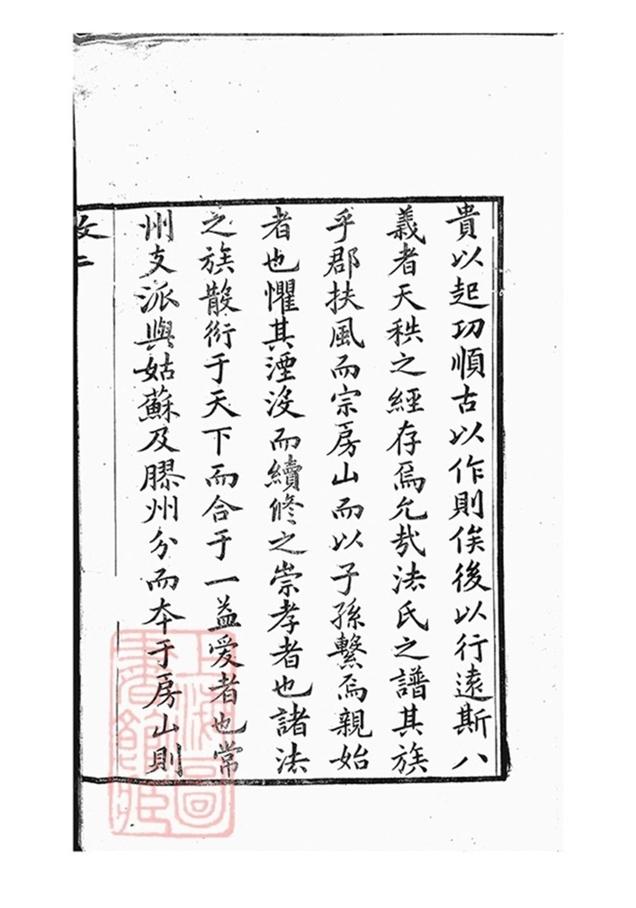 貴以起功順古以作則俟後以行遠斯八
義者天秩之經存焉允哉法氏之譜其族
乎郡扶風而宗房山而以子孫繫焉親始
者也懼其湮没而續修之崇孝者也諸法
之族散衍于天下而合于一益愛者也常
州支派與姑蘇及膠州分而本于房山則
文二
上海圖書館藏